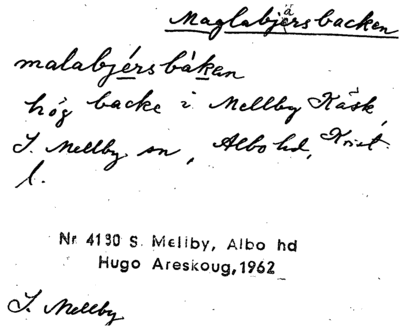 Maglabjärsbacken
malabjérsbákan
hög backe i Mellby Kåsk,
S. Mellby sn, Albo hd, Krist.
l.
Nr 4130 S. Mellby, Albo hd
Hugo Areskoug, 1962
S. Mellby